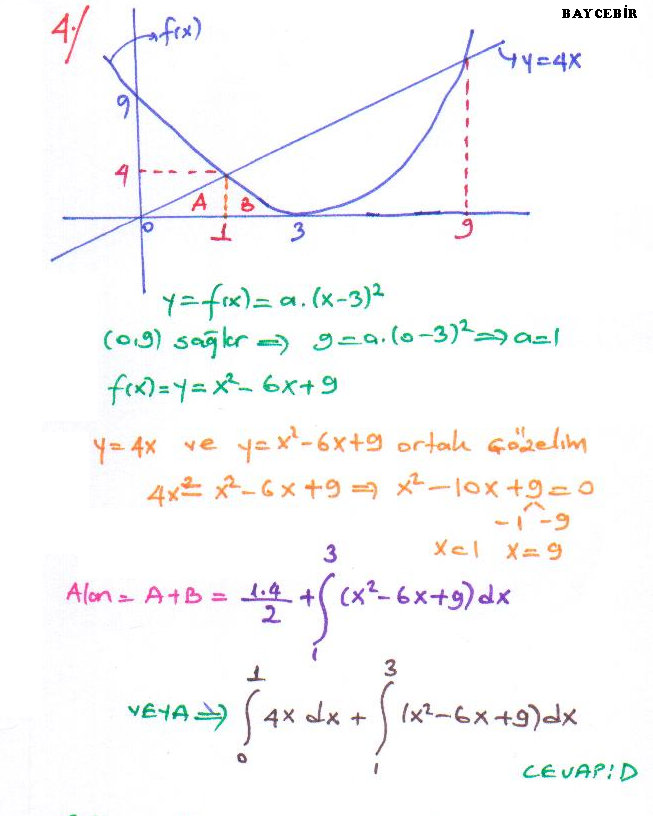 BAYCEBİR
4/
f(x)
y=4x
9
4
A B
0 1 3 9
y=f(x)=a.(x-3)²
(0,9) sağlar ⇒ 9=a.(0-3)² ⇒ a=1
f(x)=y=x²-6x+9
y=4x ve y=x²-6x+9 ortak çözelim
4x = x²-6x+9 ⇒ x²-10x+9=0
-1 -9
x=1 x=9
Alan = A+B = 1.4/2 + ∫₁³ (x²-6x+9)dx
VEYA ⇒ ∫₀¹ 4x dx + ∫₁³ (x²-6x+9)dx
CEVAP:D